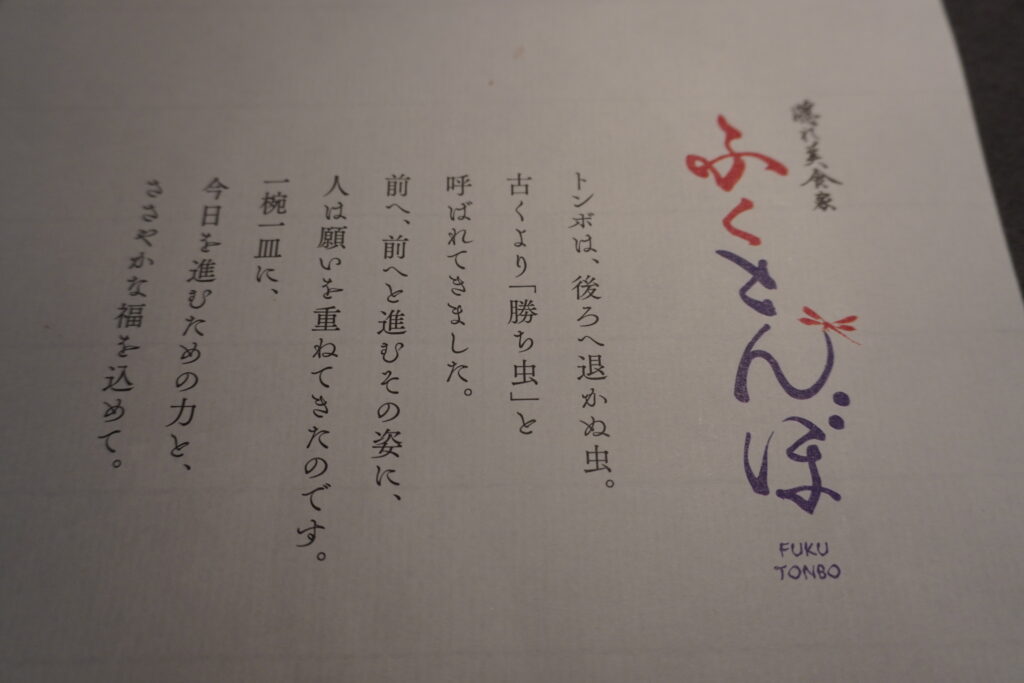 隠れ美食家
ふくとんぼ
FUKU
TONBO
トンボは、後ろへ退かぬ虫。
古くより「勝ち虫」と
呼ばれてきました。
前へ、前へと進むその姿に、
人は願いを重ねてきたのです。
一椀一皿に、
今日を進むための力と、
ささやかな福を込めて。